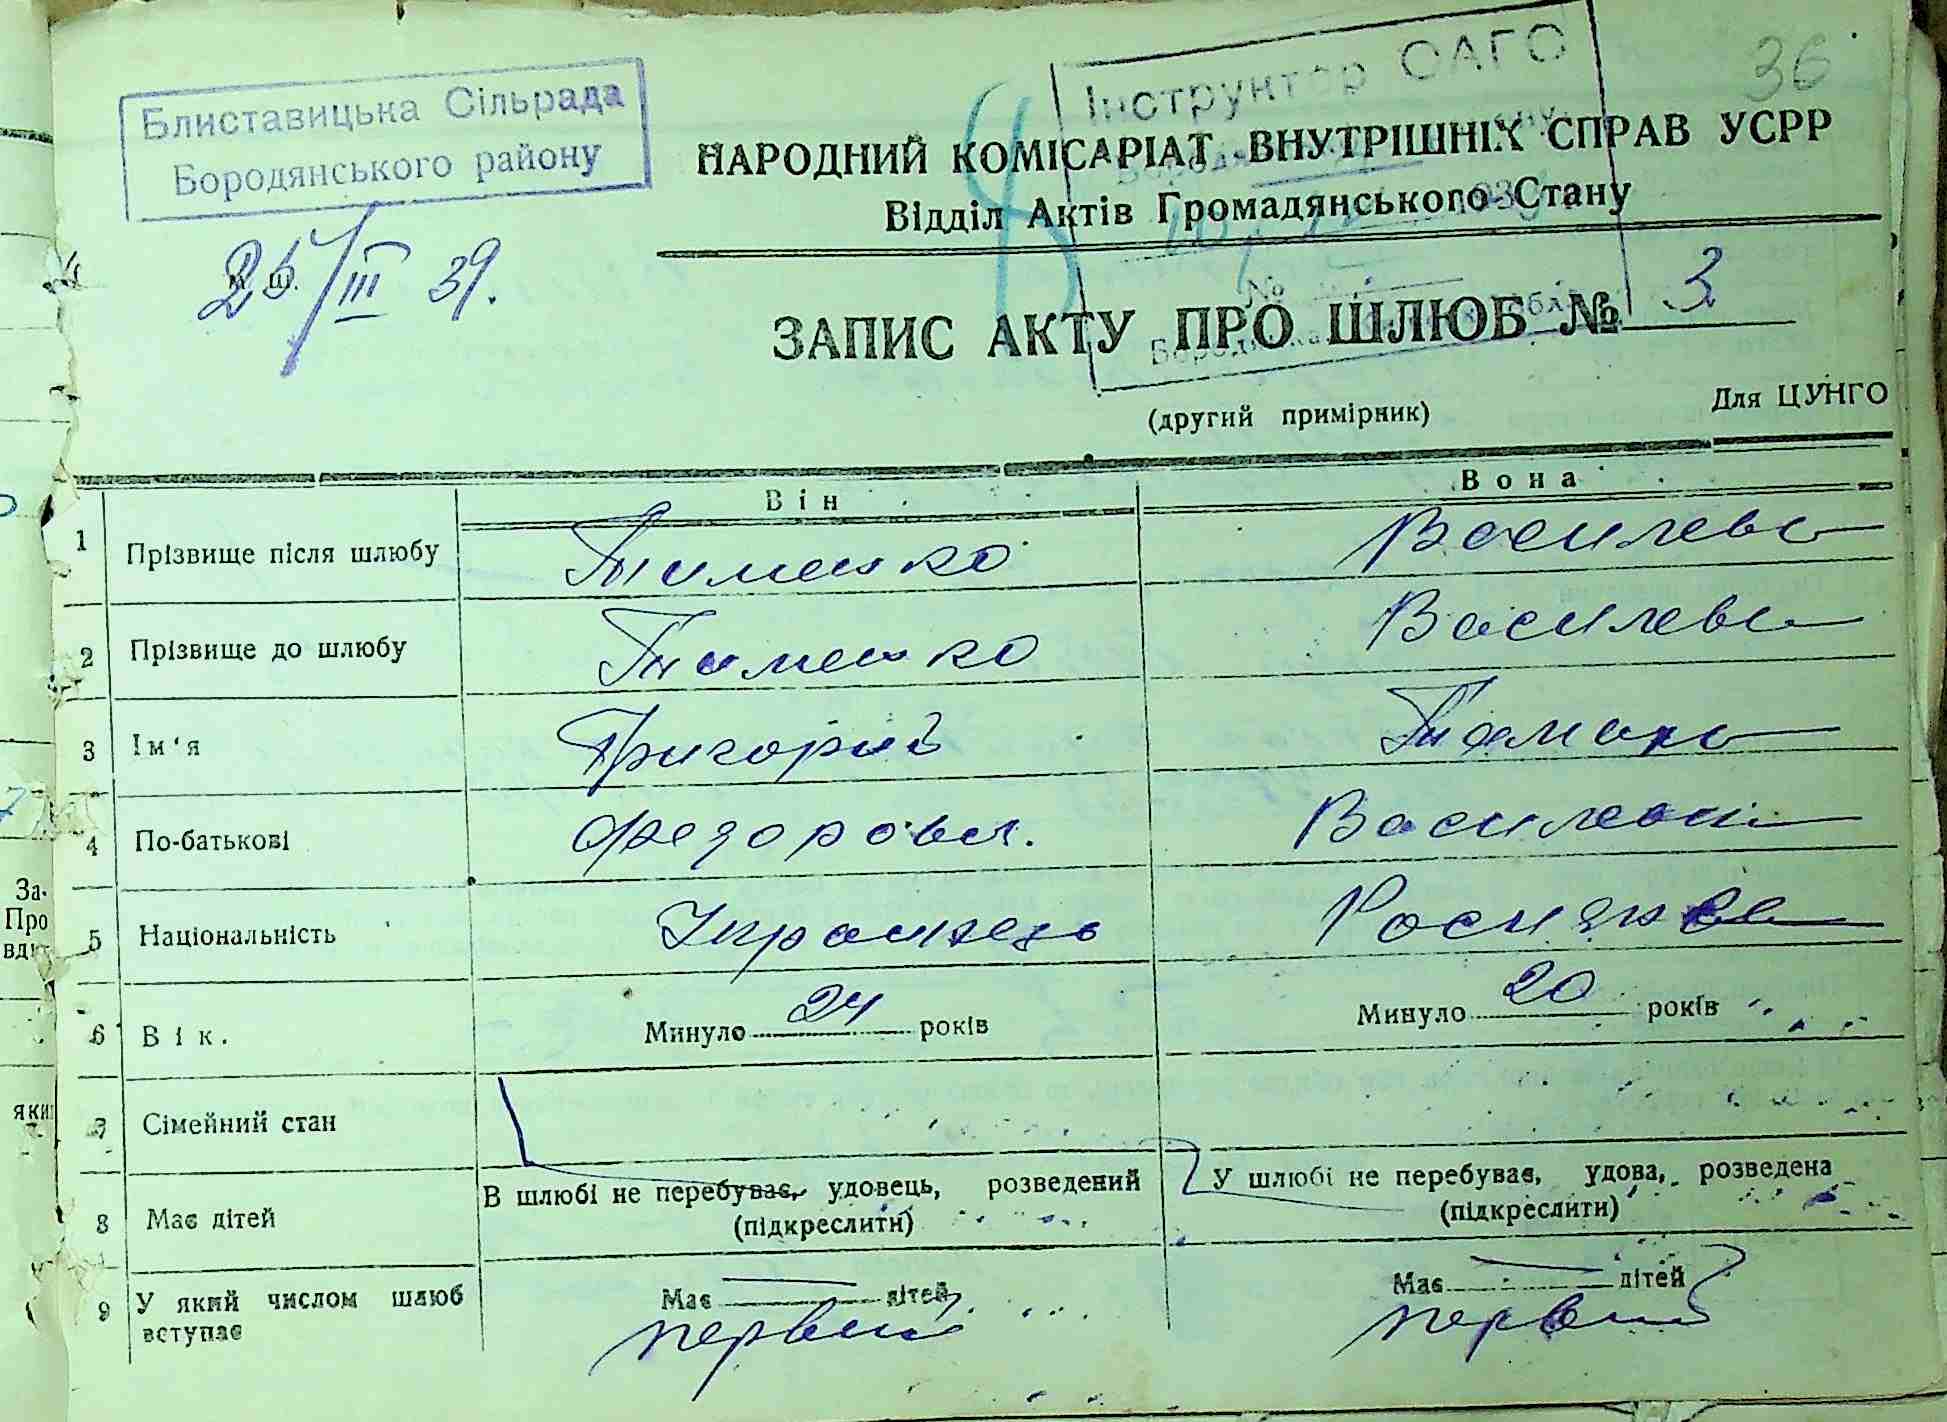 36
Блиставицька Сільрада
Бородянського району
Інструктор ОАГС
НАРОДНИЙ КОМІСАРІАТ ВНУТРІШНІХ СПРАВ УСРР
Відділ Актів Громадянського Стану
25/III 39.
М. Ш.
ЗАПИС АКТУ ПРО ШЛЮБ № 3
(другий примірник)
Для ЦУНГО
Він
Вона
1 Прізвище після шлюбу Тименко Василева
2 Прізвище до шлюбу Тименко Василева
3 Ім'я Григорий Тамара
4 По-батькові Федоров. Василевна
5 Національність Украинець Росиянка
6 Вік. Минуло 24 років Минуло 20 років
7 Сімейний стан
В шлюбі не перебуває, удовець, розведений
(підкреслити)
У шлюбі не перебуває, удова, розведена
(підкреслити)
8 Має дітей
Має дітей
Має дітей
9 У який числом шлюб
вступає
первый
первый
За-
Про
яки